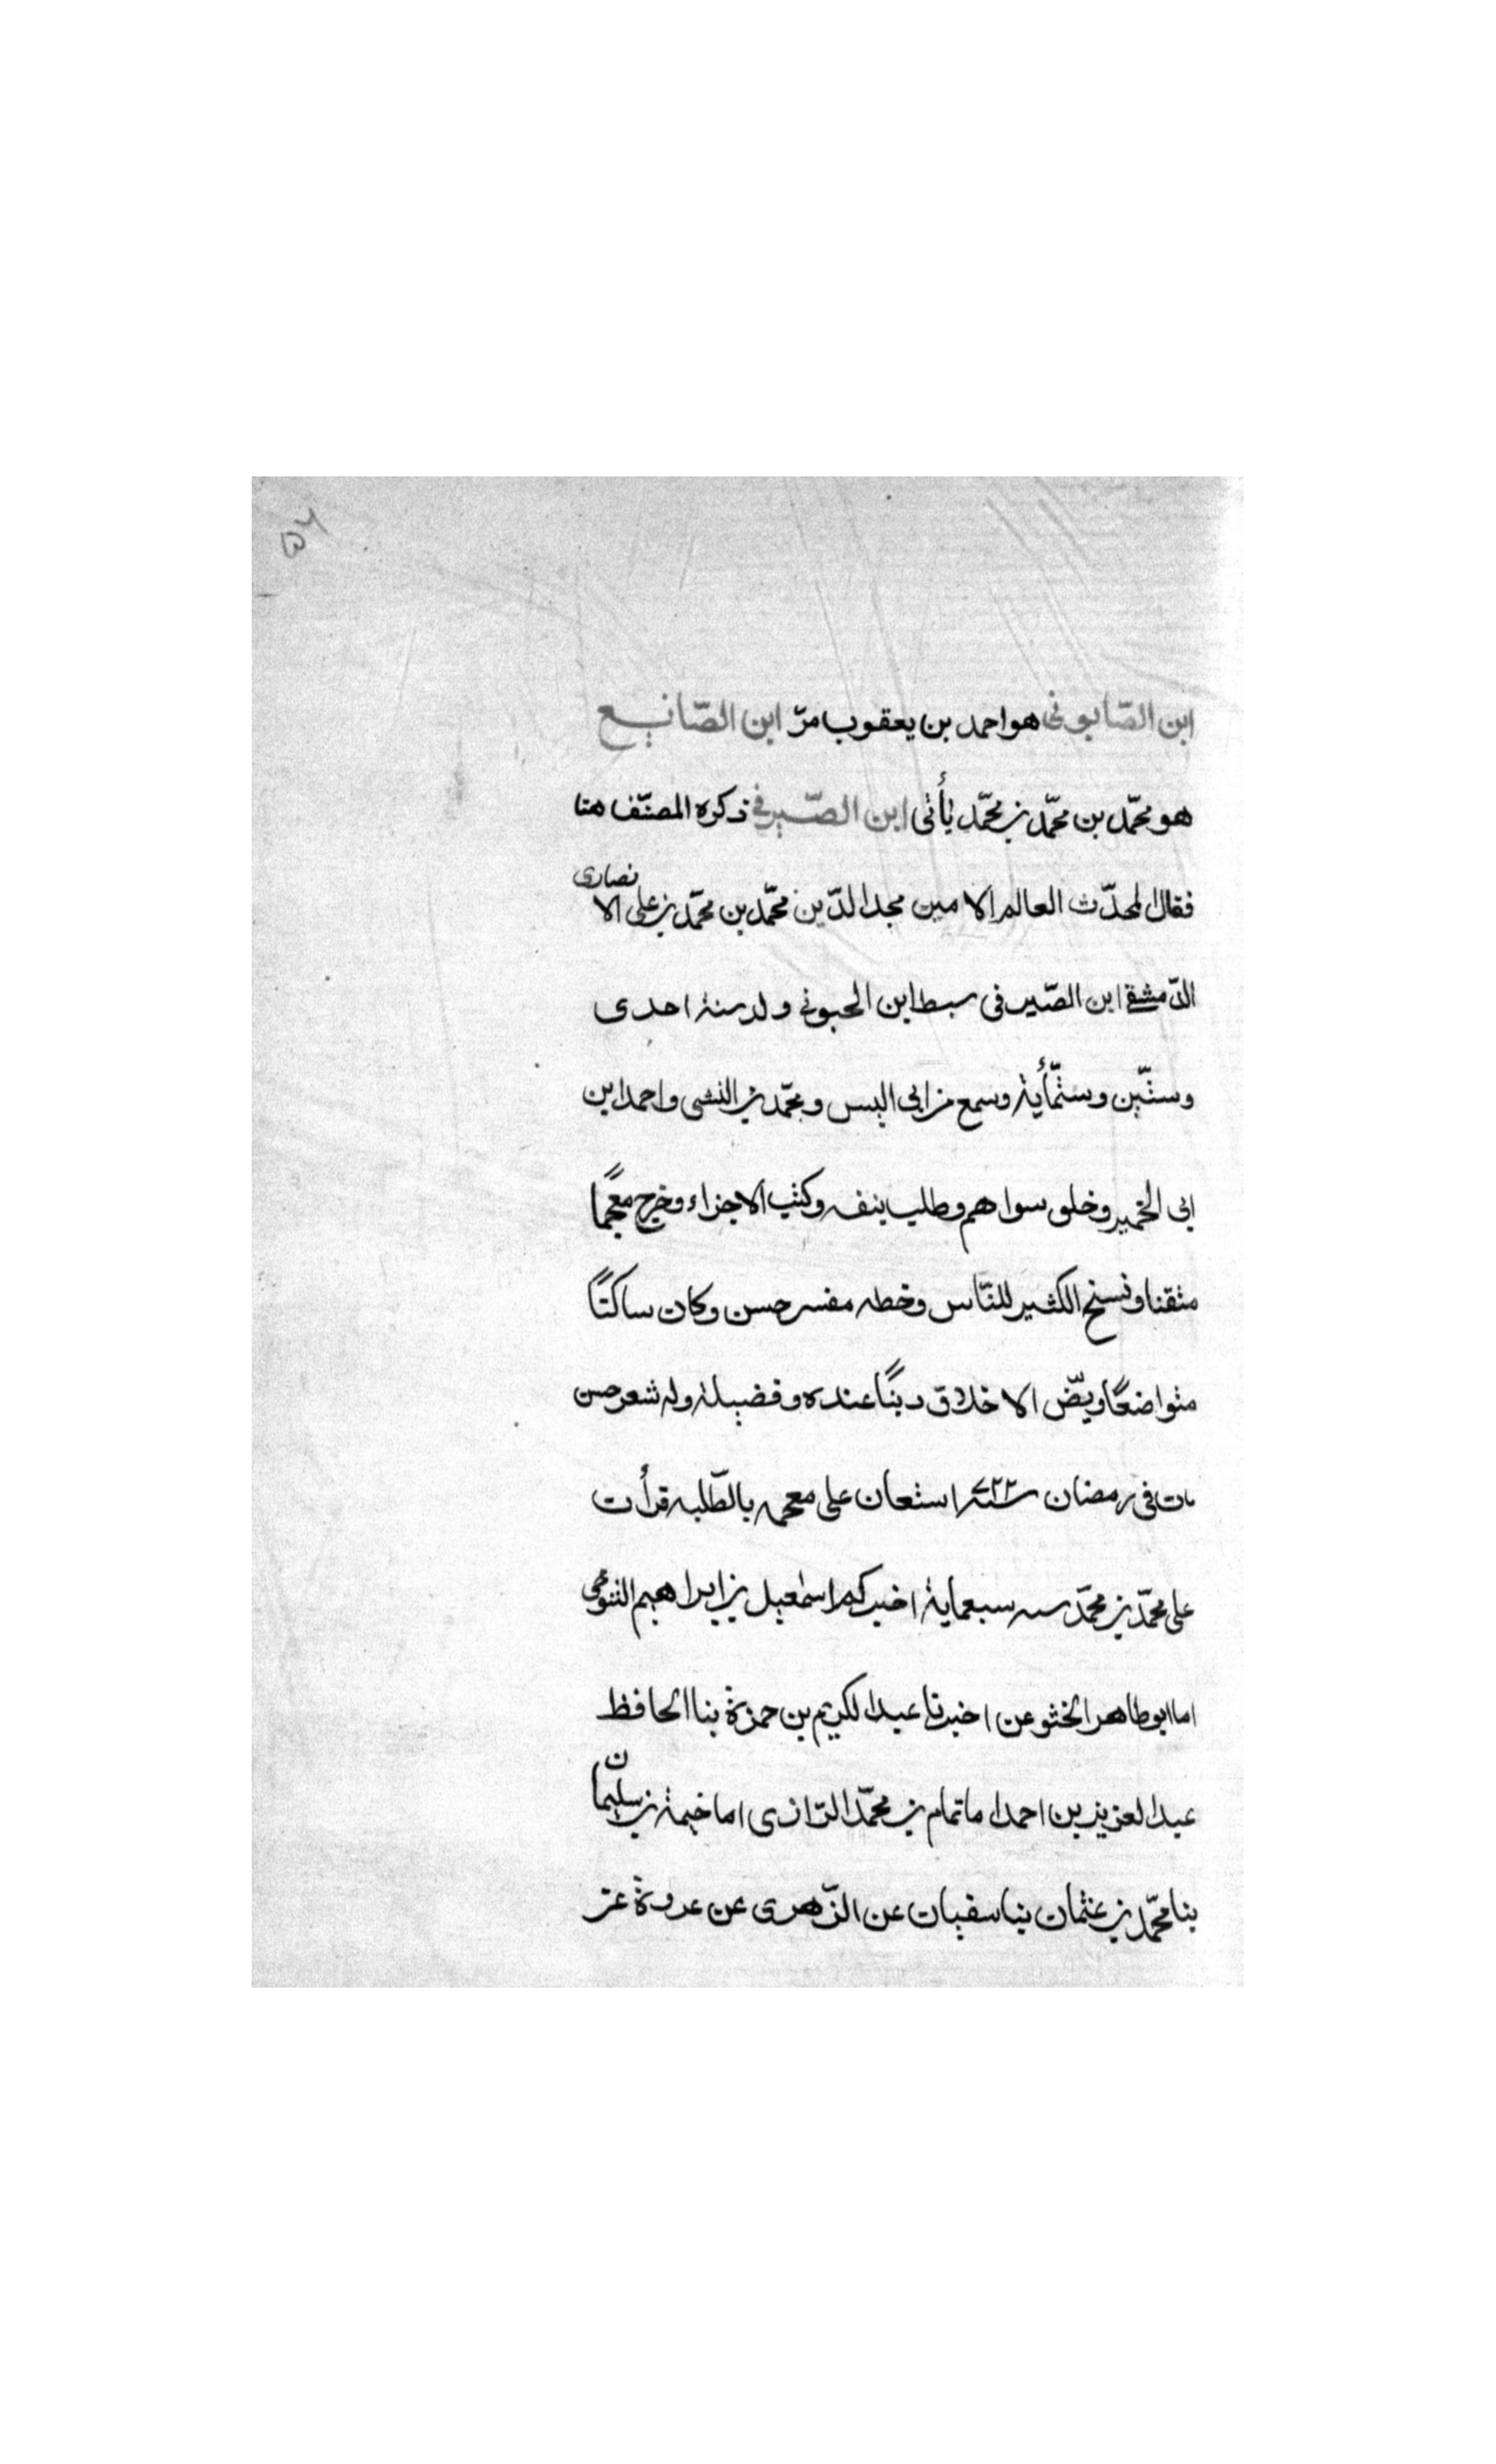 ٥٦
ابن الصّابونى هو احمد بن يعقوب مرّ ابن الصّانيع
هو محمّد بن محمّد بن محمّد يأتى ابن الصّيرفى ذكره المصنّف هنا
فقال المحدّث العالم الامين مجد الدّين محمّد بن محمّد بن على الانصارى
الدّمشقى ابن الصّيرفى سبط ابن الحبوبى ولد سنة احدى
وستّين وستّمأية وسمع من ابى اليسر ومحمّد بن النشبى واحمد ابن
ابى الخير وخلق سواهم وطلب بنفسه وكتب الاجزاء وخرج معجمًا
متقنا ونسخ الكثير للنّاس وخطه مفسر حسن وكان ساكتًا
متواضعًا ويّض الاخلاق دينًا عنده وفضيلة وله شعر حسن
مات فى رمضان سنة ٧٢٢ استعان على معجمه بالطّلبه قرأت
على محمّد بن محمّد سنه سبعماية اخبركم اسمعيل بن ابراهيم التنوخى
اما ابو طاهر الخشوعن اخبرنا عبد الكريم بن حمزة بنا الحافظ
عبد العزيز بن احمد اما تمام بن محمّد الرّازى اما خيمة بن سليمان
بنا محمّد بن عثمان بنا سفيان عن الزّهرى عن عروة عن